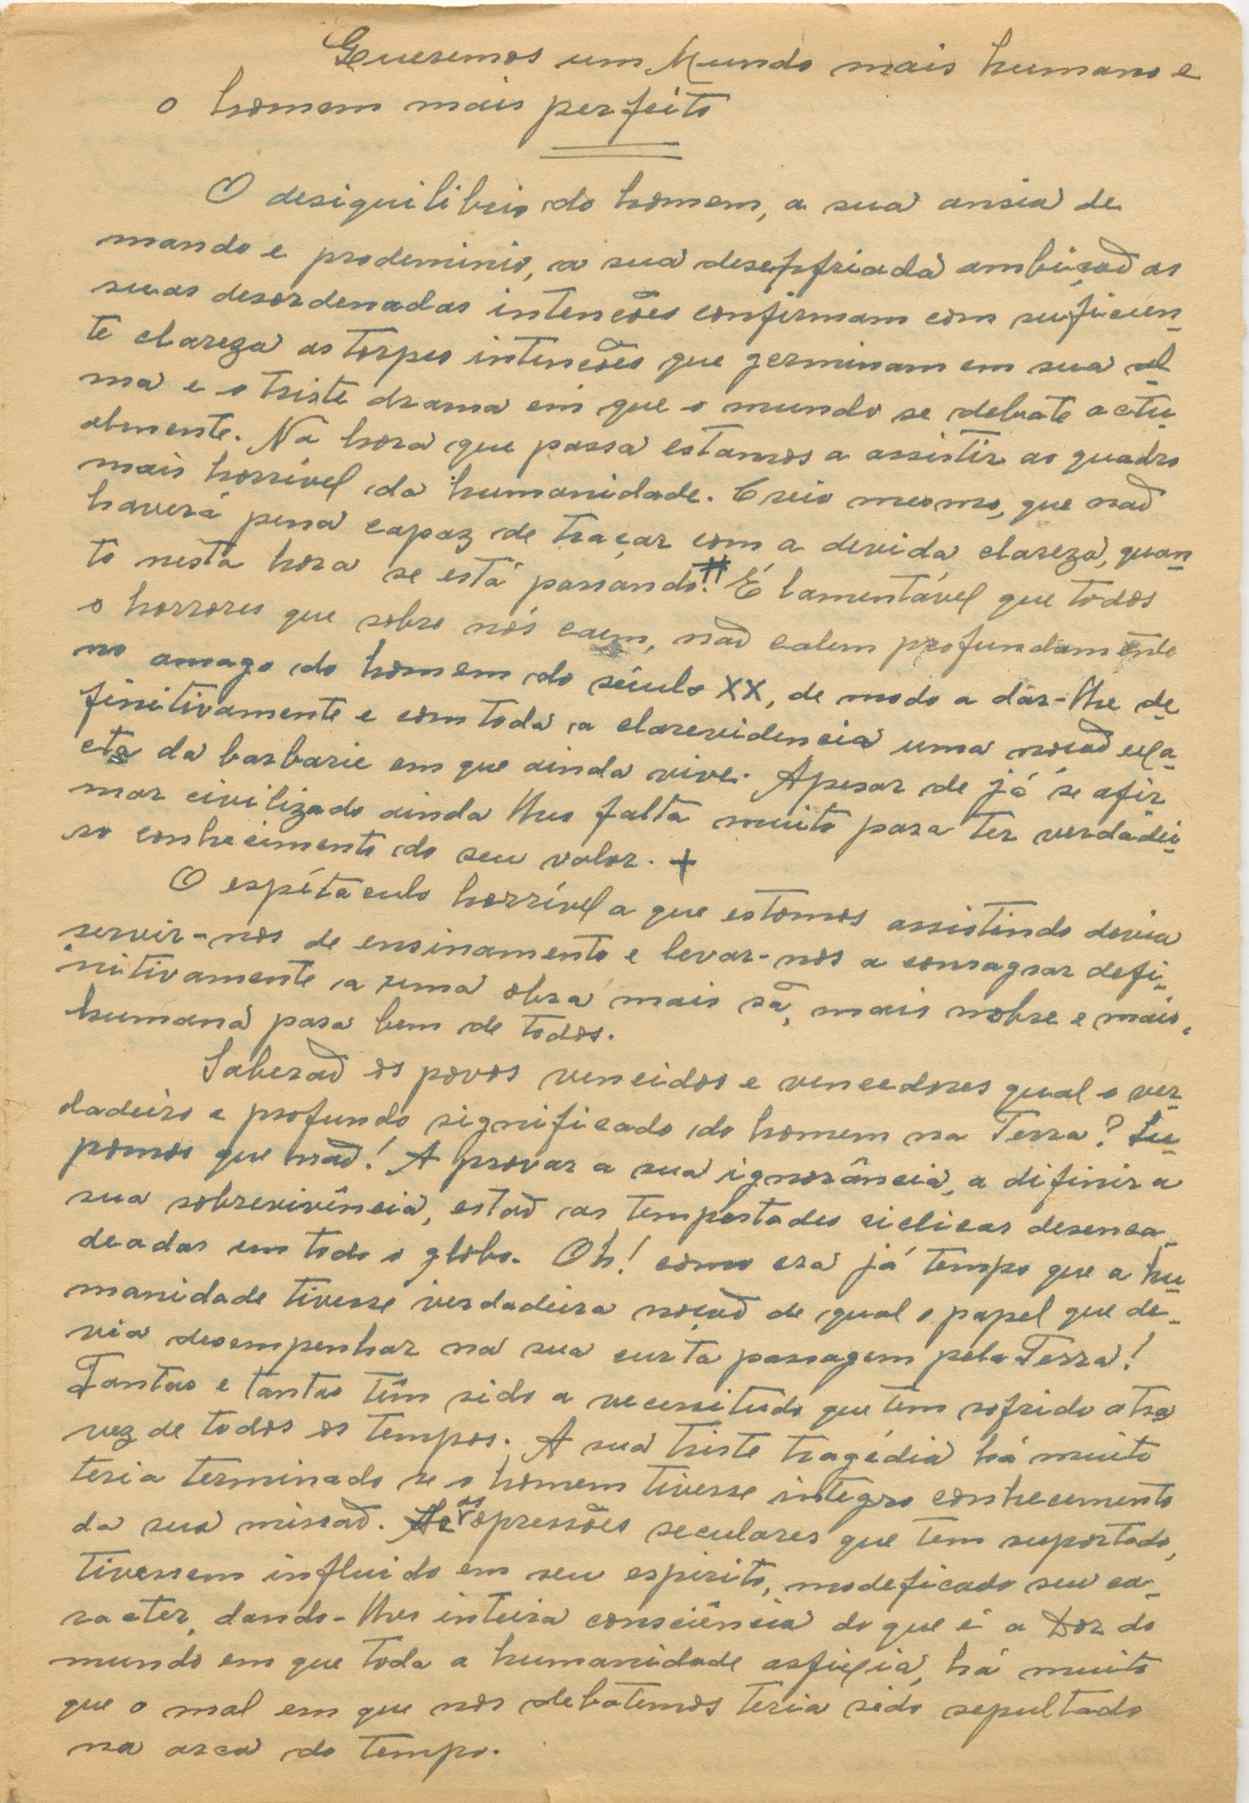 Queremos um Mundo mais humano e
o homem mais perfeito
O desiquilibrio do homem, a sua ansia de
mando e prodominio, a sua desenfriada ambiçaõ as
suas desordenadas intenções confirmam com suficien-
te clareza as torpes intenções que germinam em sua al-
ma e o triste drama em que o mundo se debate actu-
almente. Na hora que passa estamos a assistir ao quadro
mais horrível da humanidade. Creio mesmo, que naõ
haverá pena capaz de traçar com a devida clareza, quan-
to nesta hora se está passando!! É lamentável que todos
o horrores que sobre nós caem, naõ calem profundamente
no amago do homem do século XX, de modo a dar-lhe de-
finitivamente e com toda a clarevidencia uma noçaõ exa-
cta da barbarie em que ainda vive. Apesar de já se afir
mar civilizado ainda lhes falta muito para ter verdadei-
ro conhecimento do seu valor. +
O espítaculo horrível a que estamos assistindo devia
servir-nos de ensinamento e levar-nos a consagrar defi-
nitivamente a uma obra mais sã, mais nobre e mais
humana para bem de todos.
Saberaõ os povos vencidos e vencedores qual o ver-
dadeiro e profundo significado do homem na Terra? Su-
pomos que naõ! A provar a sua ignorância, a difinir a
sua sobrevivência, estaõ as tempestades ciclicas desenca-
deadas em todo o globo. Oh! como era já tempo que a hu-
manidade tivesse verdadeira noçaõ de qual o papel que de-
via desempenhar na sua curta passagem pela Terra!
Tantas e tantas têm sido a vecessitude que tem sofrido atra
vez de todos os tempos. A sua triste tragédia há muito
teria terminado se o homem tivesse integro conhecimento
da sua missaõ. as opressões seculares que tem suportado,
tivessem influido em seu espirito, modeficado seu ca-
racter, dando-lhes inteira consciência do que é a Dor do
mundo em que toda a humanidade asfixia, há muito
que o mal em que nos debatemos teria sido sepultado
na arca do tempo.